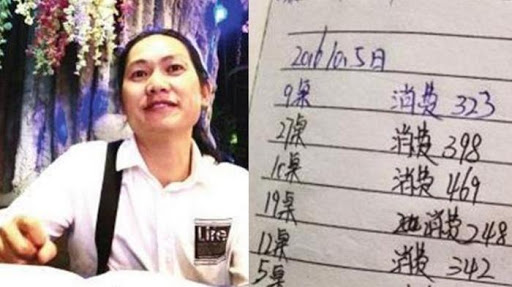 Life
2016/10.5日
9桌 消费 323
27桌 消费 398
10桌 消费 469
19桌 消费 248
12桌 消费 342
5桌